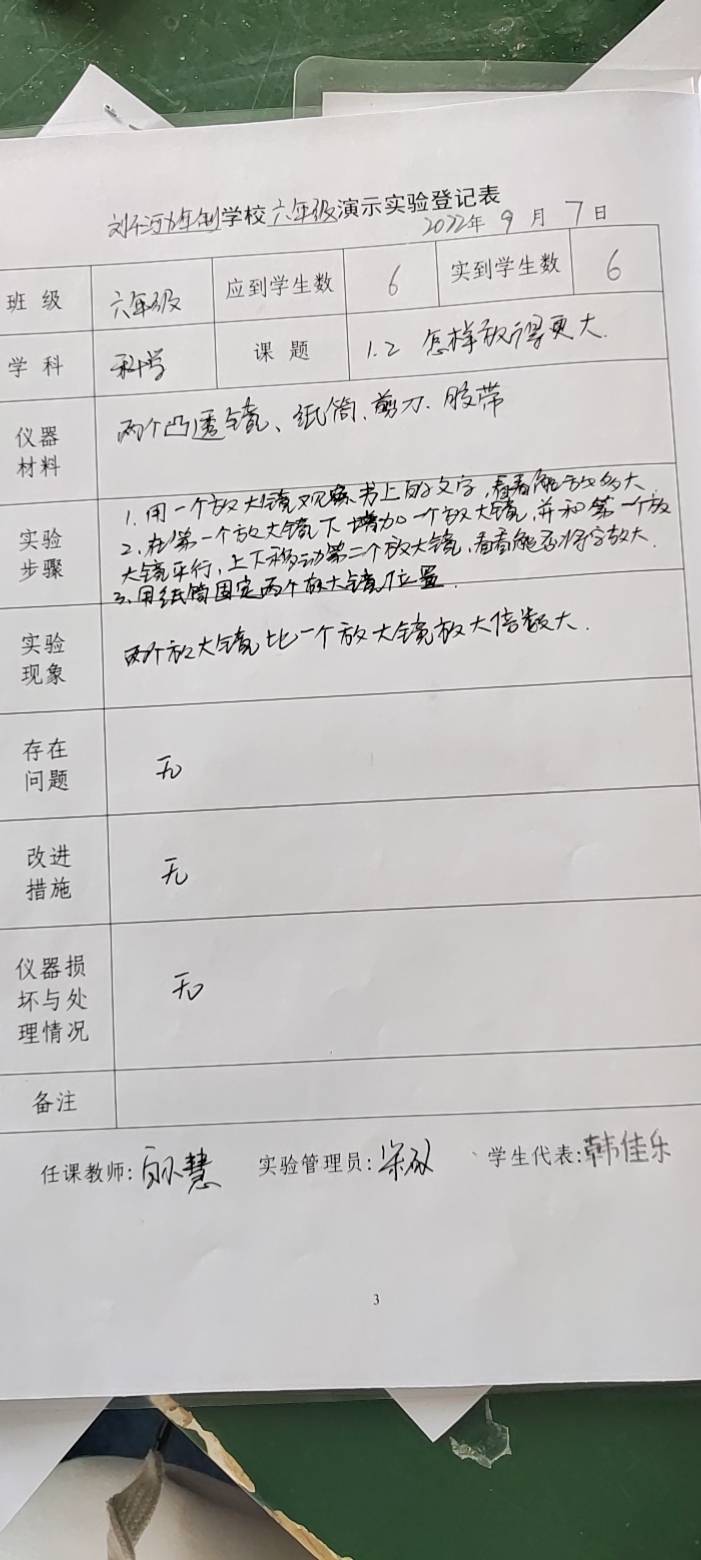 学校六年级演示实验登记表
2022年 9 月 7 日
班 级 六年级 应到学生数 6 实到学生数 6
学 科 科学 课 题 1.2 怎样放得更大.
仪器
材料
两个凸透镜、纸筒、剪刀、胶带
实验
步骤
1. 用一个放大镜观察书上的文字,看看能放多大
2. 在第一个放大镜下增加一个放大镜,并和第一个放
大镜平行,上下移动第二个放大镜,看看能否将字放大.
3. 用纸筒固定两个放大镜位置.
实验
现象
两个放大镜比一个放大镜放大倍数大.
存在
问题
无
改进
措施
无
仪器损
坏与处
理情况
无
备注
任课教师: 慧 实验管理员: 学生代表:韩佳乐
3